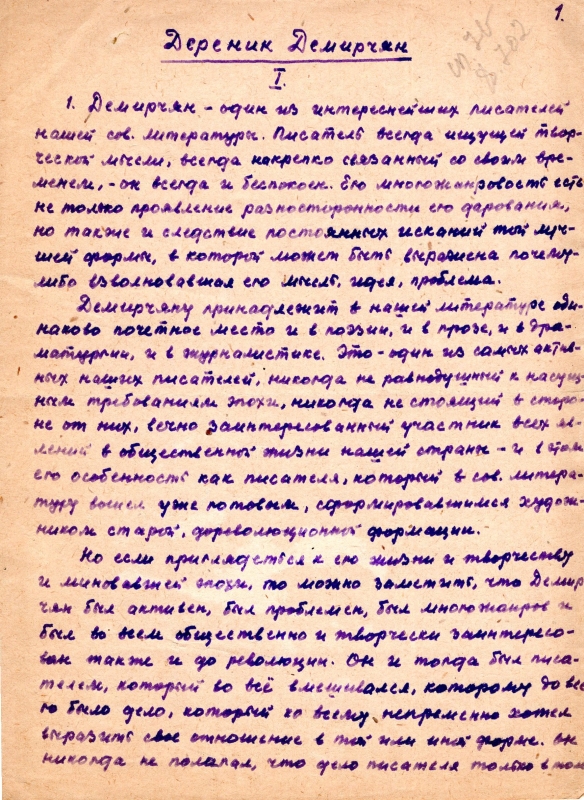 1.
Дереник Демирчян
I.
1. Демирчян – один из интереснейших писателей
нашей сов. литературы. Писатель всегда ищущей твор-
ческой мысли, всегда накрепко связанный со своим вре-
менем, – он всегда и беспокоен. Его многожанровость есть
не только проявление разносторонности его дарования,
но также и следствие постоянных исканий той луч-
шей формы, в которой может быть выражена почему-
либо взволновавшая его мысль, идея, проблема.
Демирчяну принадлежит в нашей литературе оди-
наково почетное место и в поэзии, и в прозе, и в дра-
матургии, и в журналистике. Это – один из самых актив-
ных наших писателей, никогда не равнодушный к насущ-
ным требованиям эпохи, никогда не стоящий в сторо-
не от них, вечно заинтересованный участник всех яв-
лений в общественной жизни нашей страны – и в этом
его особенность как писателя, который в сов. литера-
туру вошел уже готовым, сформировавшимся худож-
ником старой, дореволюционной формации.
Но если приглядеться к его жизни и творчеству
и миновавшей эпохи, то можно заметить, что Демир-
чян был активен, был проблемен, был многожанров и
был во всем общественно и творчески заинтересо-
ван также и до революции. Он и тогда был писа-
телем, который во всё вмешивался, которому до все-
го было дело, который ко всему непременно хотел
выразить свое отношение в той или иной форме. Он
никогда не полагал, что дело писателя только в том